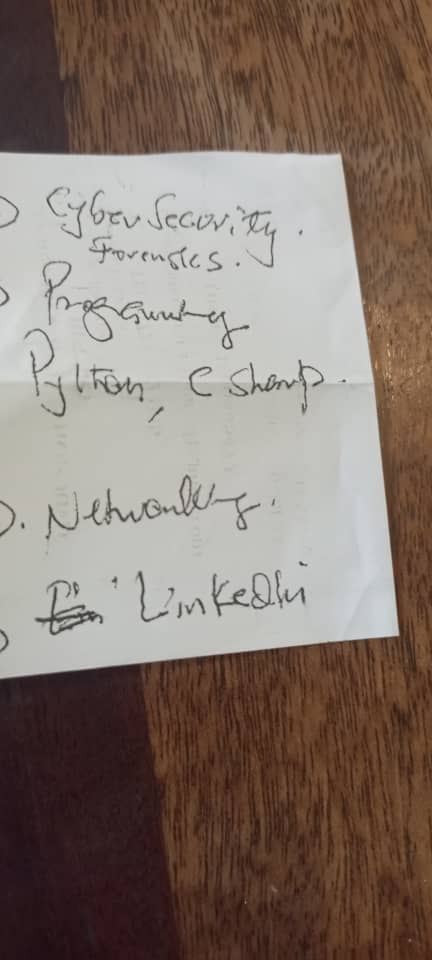 ) Cyber Security.
Forensics.
) Programming
Python, C Sharp.
). Networking.
) LinkedIn